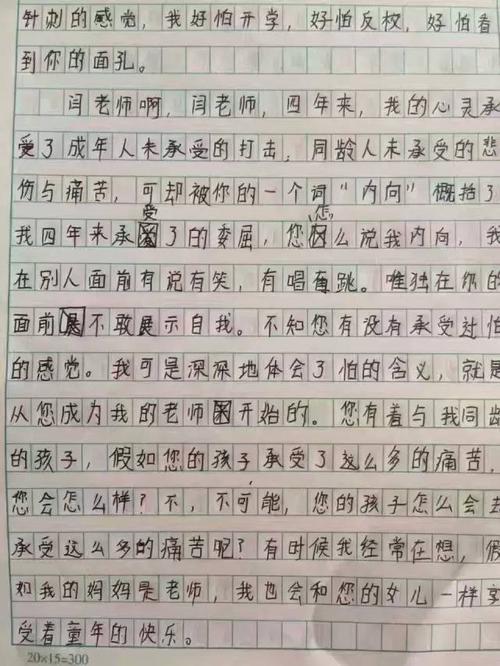 针刺的感觉，我好怕开学，好怕反校，好怕看
到你的面孔。
闫老师啊，闫老师，四年来，我的心灵承
受了成年人未承受的打击，同龄人未承受的悲
伤与痛苦，可却被你的一个词“内向”概括了
我四年来承受了的委屈，您怎么说我内向，我
在别人面前有说有笑，有唱有跳。唯独在你的
面前不敢展示自我。不知您有没有承受过怕
的感觉。我可是深深地体会了怕的含义，就是
从您成为我的老师开始的。您有着与我同龄
的孩子，假如您的孩子承受了这么多的痛苦，
您会怎么样？不，不可能，您的孩子怎么会去
承受这么多的痛苦呢？有时候我经常在想，假
如我的妈妈是老师，我也会和您的女儿一样享
受着童年的快乐。
20×15=300